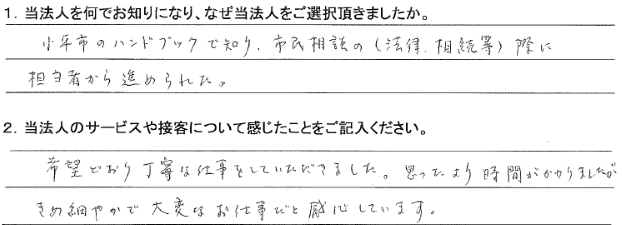 1. 当法人を何でお知りになり、なぜ当法人をご選択頂きましたか。
小平市のハンドブックで知り、市民相談の（法律、相続等）際に
担当者から進められた。
2. 当法人のサービスや接客について感じたことをご記入ください。
希望どおり丁寧な仕事をしていただきました。思ったより時間がかかりましたが
きめ細やかで大変なお仕事だと感心しています。